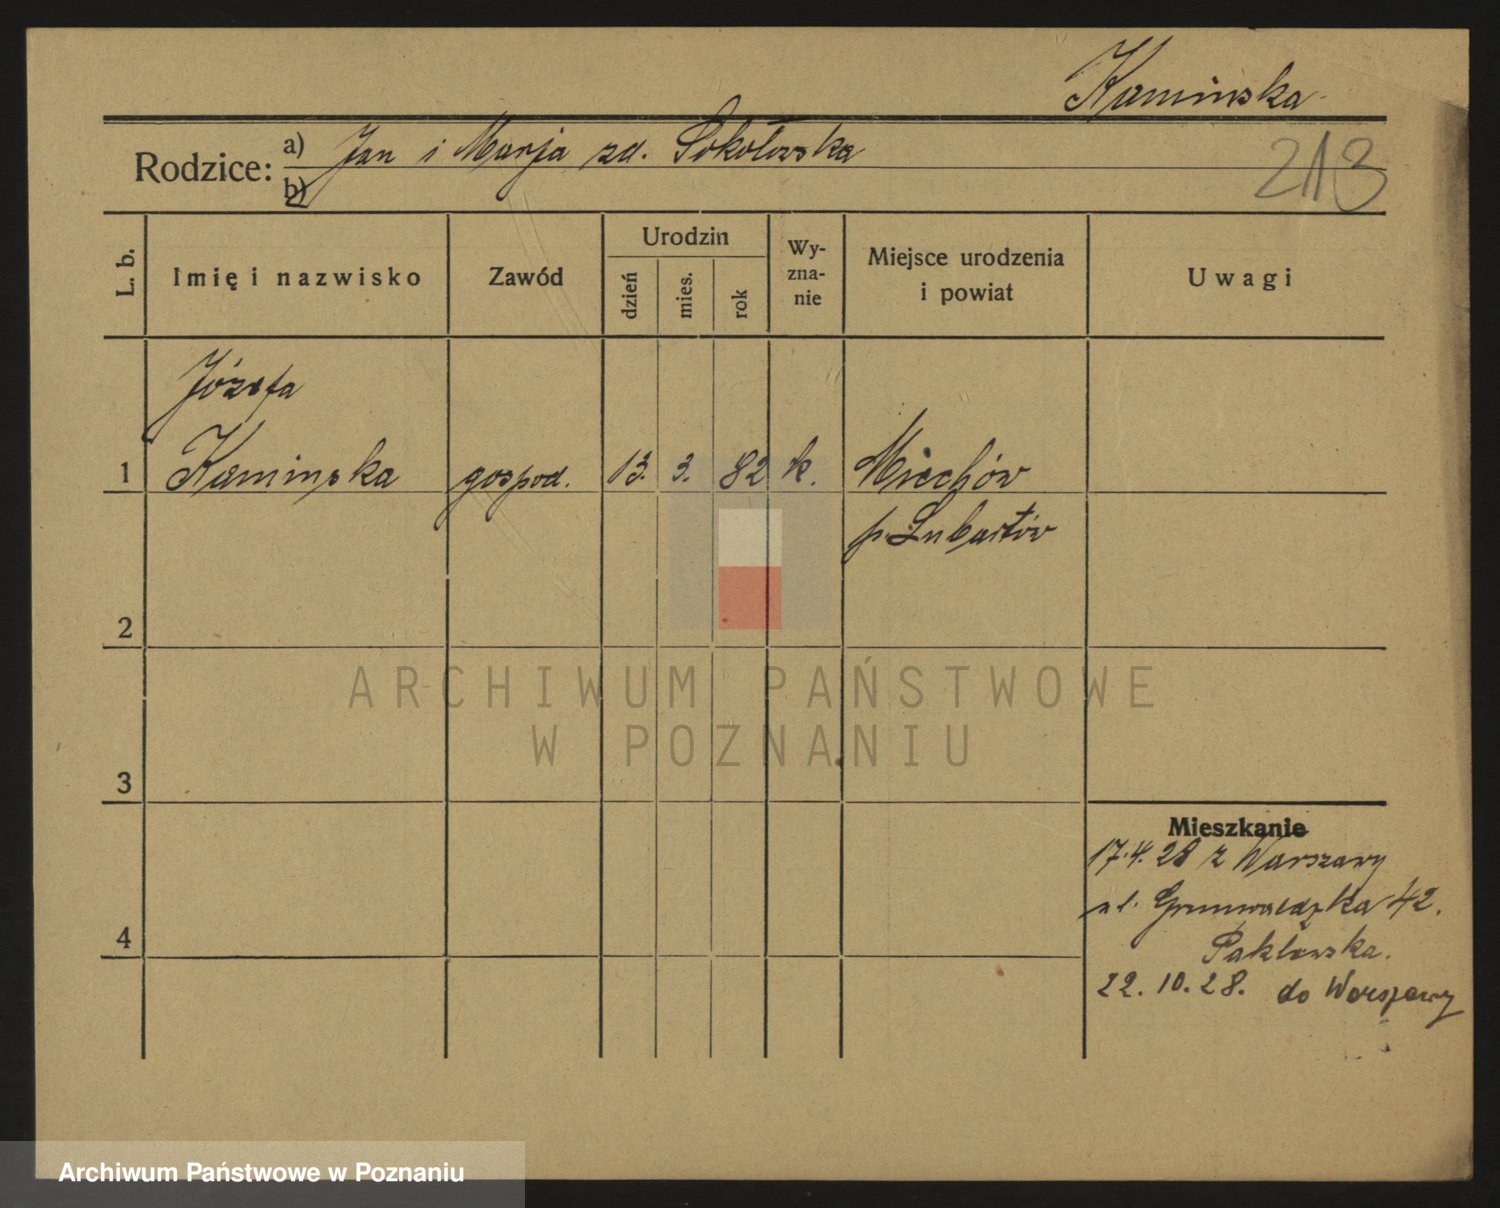 Kaminska
Rodzice: a) Jan i Marja zd. Sokołowska
b)
213
L. b.
Imię i nazwisko
Zawód
Urodzin
dzień
mies.
rok
Wy-
zna-
nie
Miejsce urodzenia
i powiat
Uwagi
Józefa
1 Kaminska gospod. 13. 3. 82 k. Miechów
p. Lubartów
2
3
4
Mieszkanie
17.4.28 z Warszawy
ul. Grunwaldzka 42.
Paklowska.
22.10.28. do Warszawy
ARCHIWUM PAŃSTWOWE
W POZNANIU
Archiwum Państwowe w Poznaniu